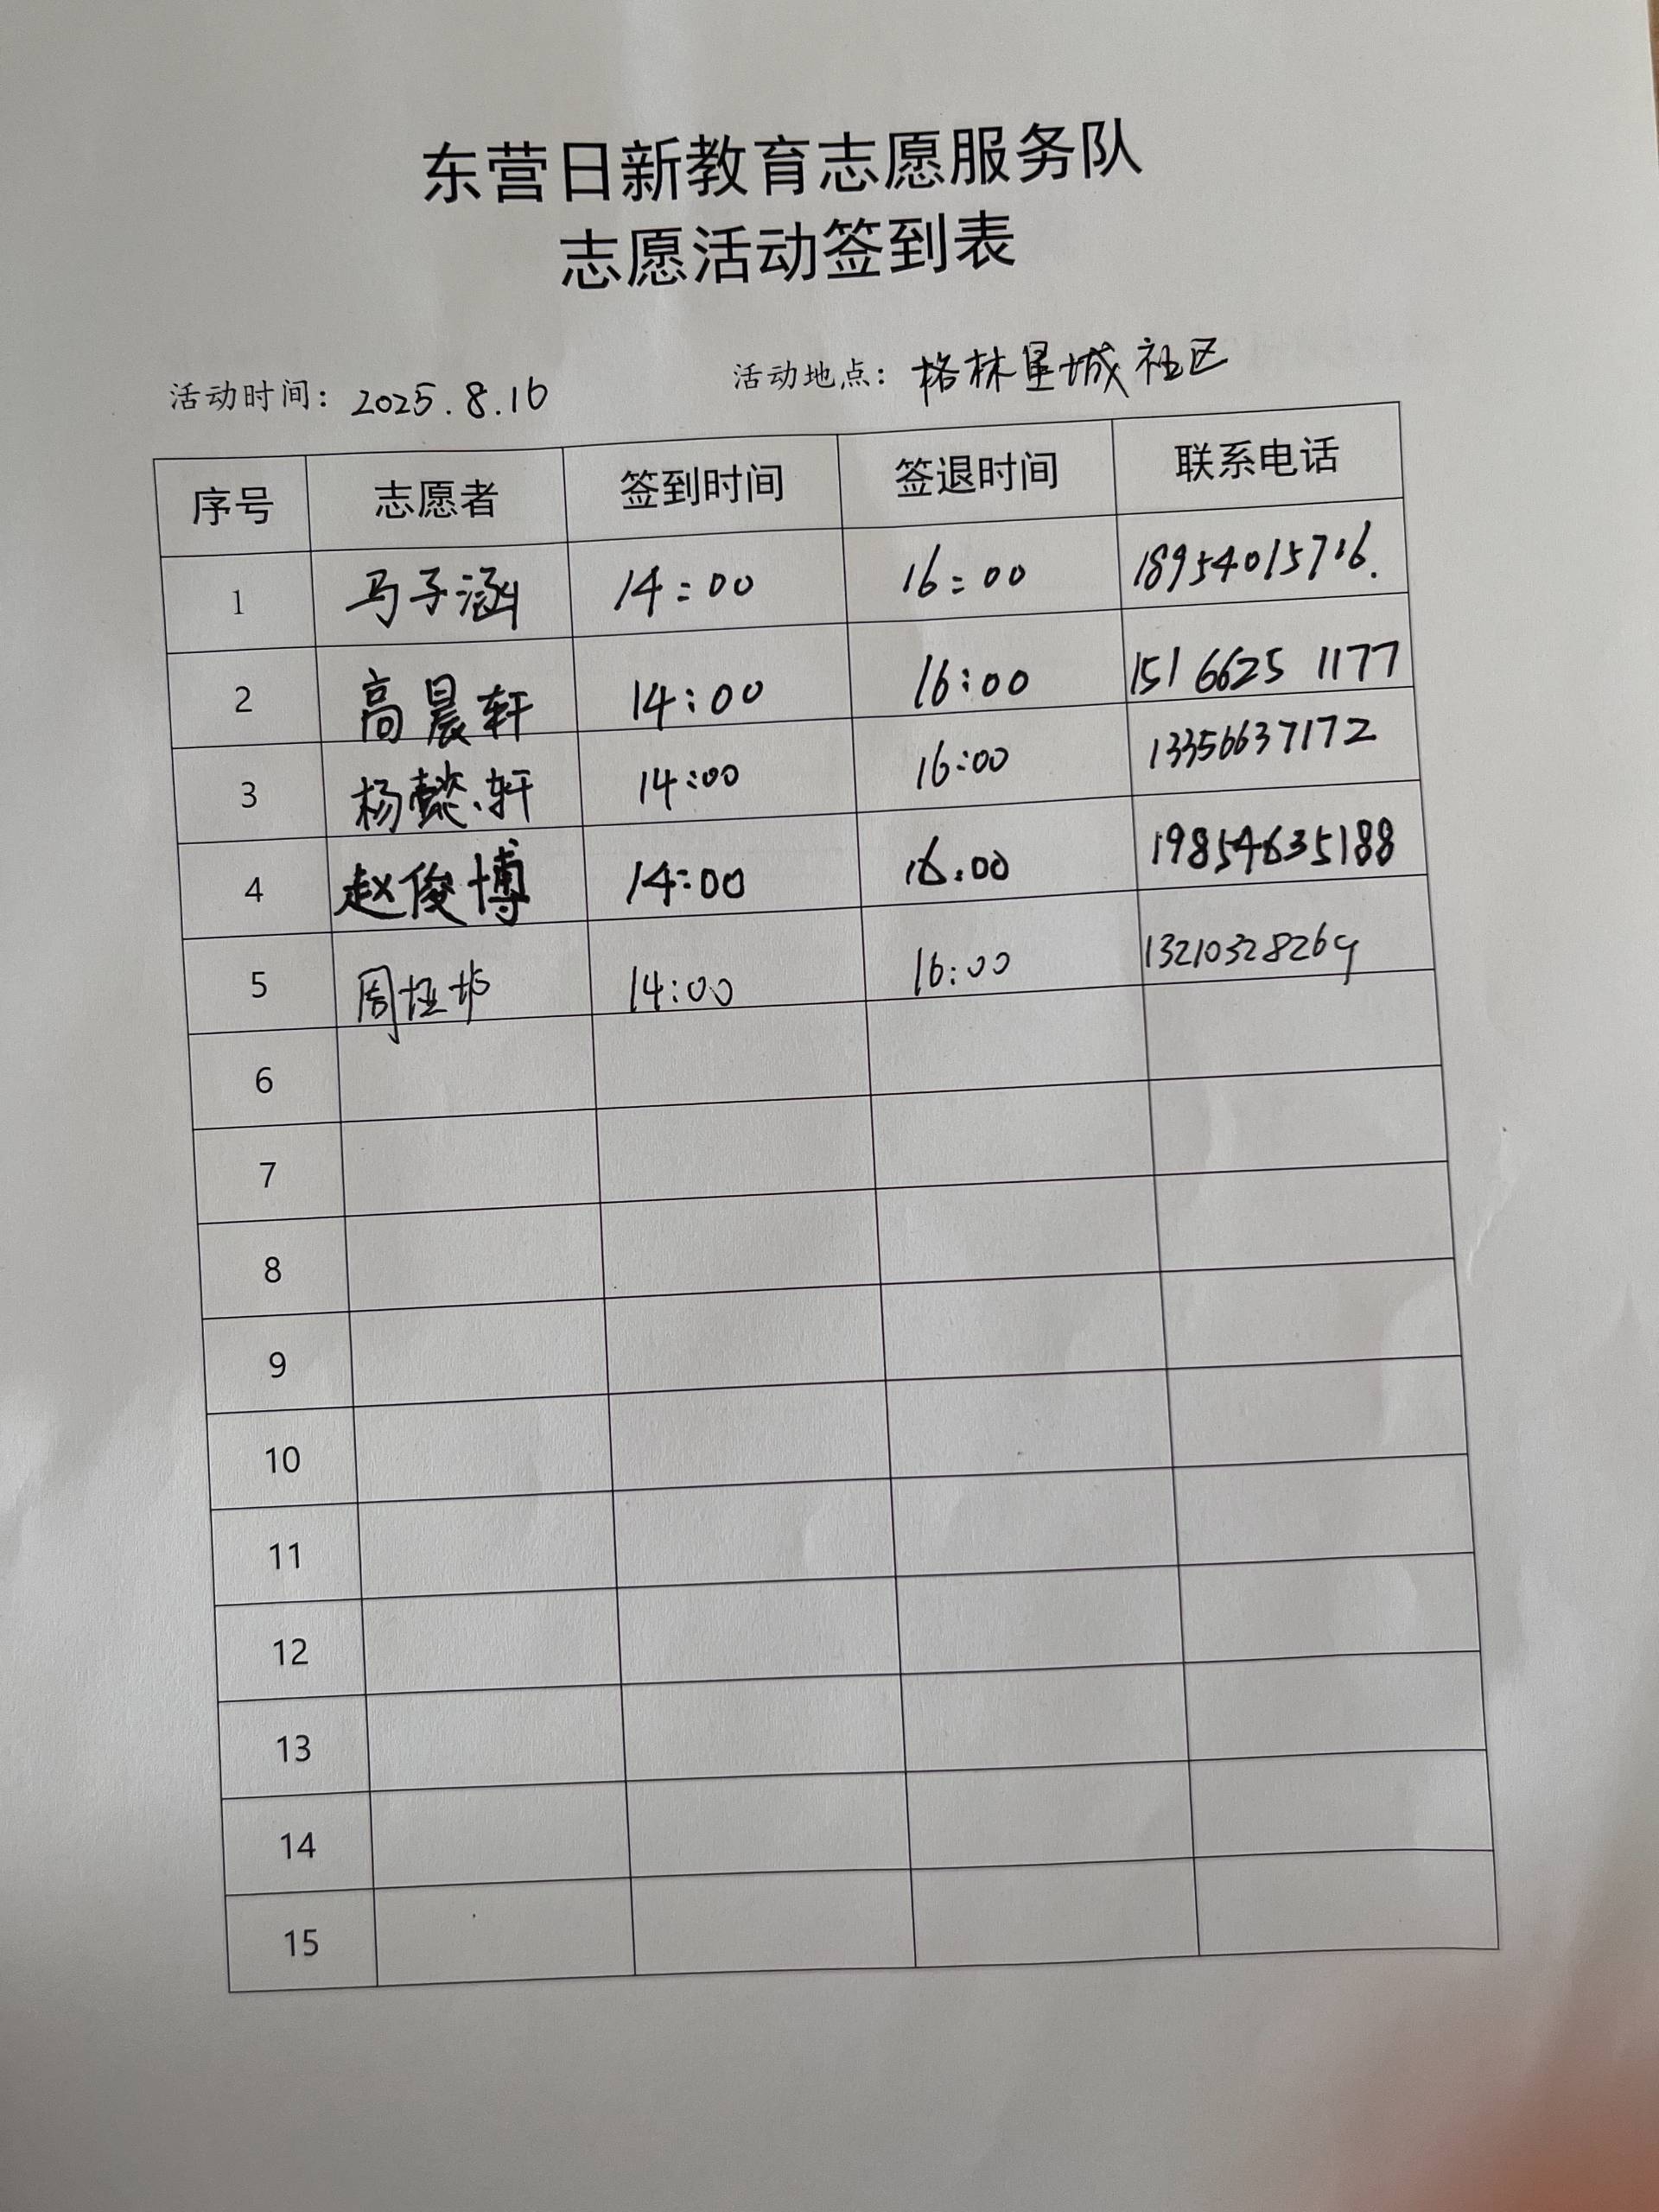 东营日新教育志愿服务队
志愿活动签到表
活动时间: 2025.8.16 活动地点: 格林星城社区
序号 志愿者 签到时间 签退时间 联系电话
1 马子涵 14:00 16:00 18954015716.
2 高晨轩 14:00 16:00 151 6625 1177
3 杨懿轩 14:00 16:00 13356637172
4 赵俊博 14:00 16.00 19854635188
5 周 14:00 16:00 13210328269
6
7
8
9
10
11
12
13
14
15